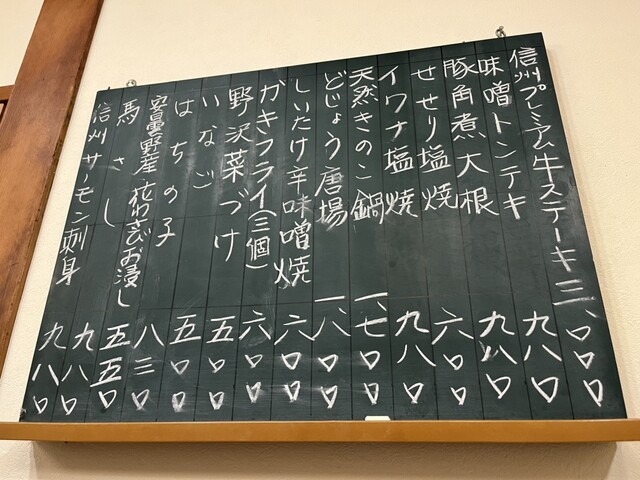 信州プレミアム牛ステーキ 三、〇〇〇
味噌トンテキ 九八〇
豚角煮大根 九八〇
せせり塩焼 六〇〇
イワナ塩焼 九八〇
天然きのこ鍋 一、七〇〇
どじょう唐場 一、八〇〇
しいたけ辛味噌焼 六〇〇
がきフライ(三個) 六〇〇
野沢菜づけ 五〇〇
いなご 五〇〇
はちの子 八三〇
安曇野産花わさびお浸し 五五〇
馬さし 九八〇
信州サーモン刺身 九八〇